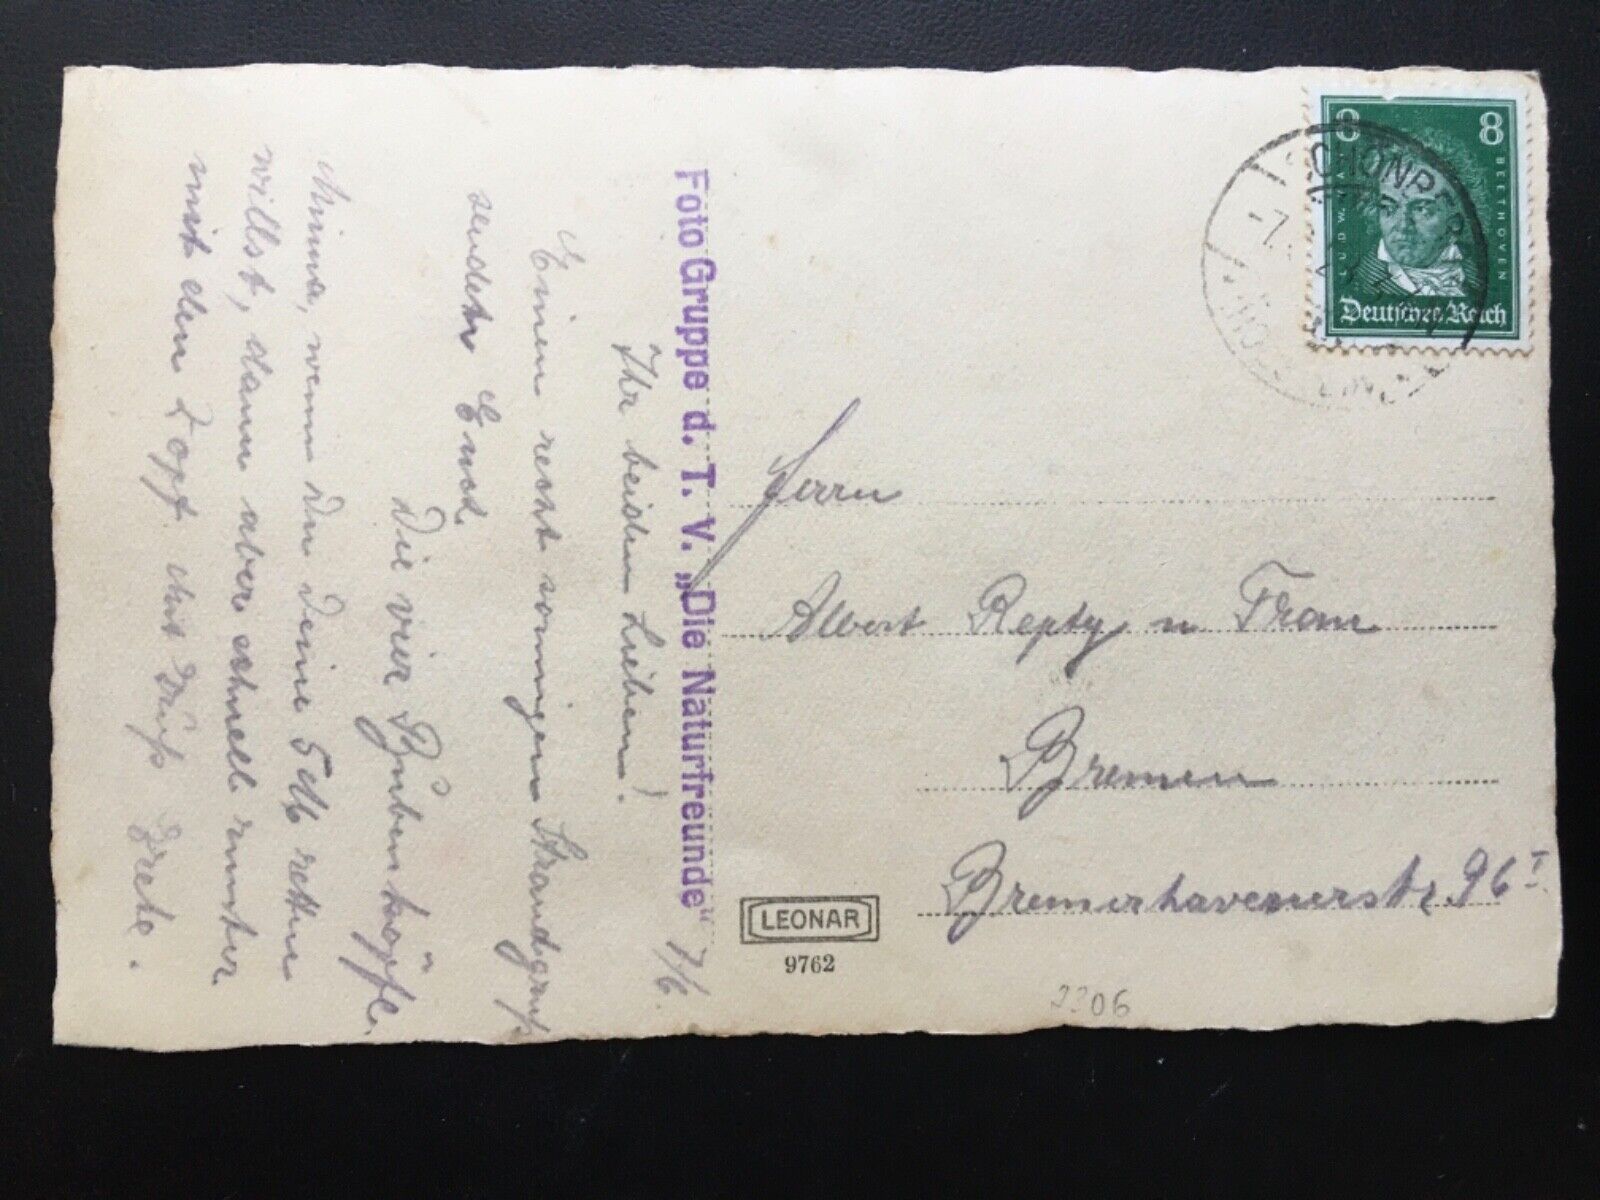 7/6.
Ihr beiden Lieben!
Einen recht sonnigen Strandgruß
senden Euch
Die vier Bubenköpfe.
Minna, wenn du deine 5 M retten
willst, dann aber schnell runter
mit den Zopf Gruß Grete.
Foto Gruppe d. T. V. „Die Naturfreunde"
8 8
LUDW. VAN BEETHOVEN
Deutsches Reich
SCHÖNBERG
(HOLSTEIN)
Herrn
Albert Repty u Frau
Bremen
Bremerhavenerstr. 96 I
LEONAR
9762
2306